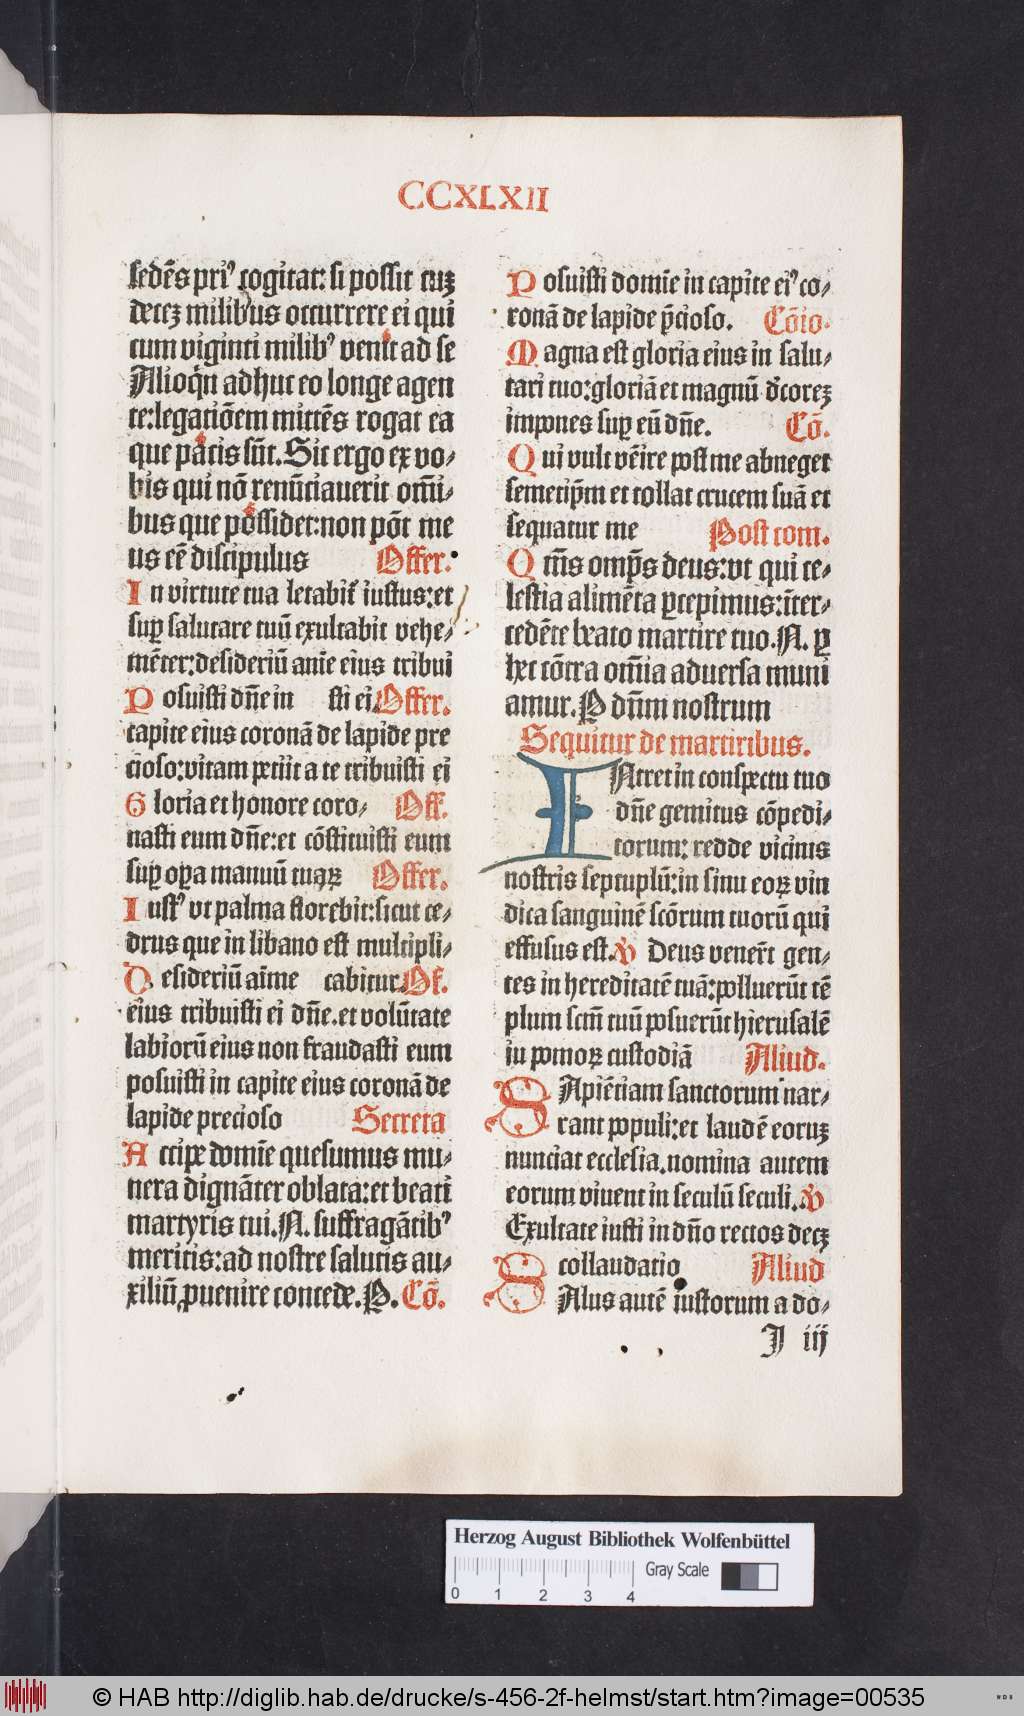 CCXLXII
sedēs priꝰ cogitat: si possit cuꝫ
deceꝫ milibus occurrere ei qui
cum viginti milibꝰ venit ad se
Alioqͥn adhuc eo longe agen
te: legatiōem mittēs rogat ea
que pacis sūt. Sic ergo ex vo/
bis qui nō renūciaverit om̄i/
bus que possidet: non pōt me
us eē discipulus Offer.
In virtute tua letabit̉ iustus: et
suꝑ salutare tuū exultabit vehe/
mēter: desideriū anīe eius tribui
Posuisti dn̄e in sti ei. Offer.
capite eius coronā de lapide pre
cioso: vitam petiit a te tribuisti ei
Gloria et honore coro/ Off.
nasti eum dn̄e: et cōstituisti eum
suꝑ oꝑa manuū tuaꝝ Offer.
Iustꝰ vt palma florebit: sicut ce/
drus que in libano est multipli/
Desideriū aīme cabitur. Of.
eius tribuisti ei dn̄e. et volūtate
labiorū eius non fraudasti eum
posuisti in capite eius coronā de
lapide precioso Secreta
Accipe domīe quesumus mu/
nera dignāter oblata: et beati
martyris tui. N. suffragātibꝰ
meritis: ad nostre salutis au/
xiliū ꝓuenire concede. P. Cō.
Posuisti domīe in capite eiꝰ co/
ronā de lapide p̄cioso. Cōio.
Magna est gloria eius in salu/
tari tuo: gloriā et magnū dͨcoreꝫ
impones suꝑ eū dn̄e. Cō.
Qui vult vēire post me abneget
semetip̄m et tollat crucem suā et
sequatur me Post com.
Q̄ sūs omp̄s deus: vt qui ce/
lestia alimēta ꝑcepimus: īter/
cedēte beato martire tuo. N. ꝑ
hec cōtra om̄ia adversa muni
amur. P dn̄m nostrum
Sequitur de martiribus.
INtret in conspectu tuo
dn̄e gemitus cōpedi/
torum: redde vicinis
nostris septuplū: in sinu eoꝝ vin
dica sanguinē scōrum tuorū qui
effusus est. V Deus venerūt gen/
tes in hereditatē tuā: polluerūt tē
plum sctm̄ tuū posuerūt hierusalē
in pomoꝝ custodiā Aliud.
SApiētiam sanctorum nar/
rant populi: et laudē eoruꝫ
nunciat ecclesia. nomina autem
eorum vivent in seculū seculi. V
Exultate iusti in dn̄o rectos deceꝫ
collaudatio Aliud
SAlus autē iustorum a do/
J iij
Herzog August Bibliothek Wolfenbüttel
Gray Scale
0 1 2 3 4
© HAB http://diglib.hab.de/drucke/s-456-2f-helmst/start.htm?image=00535